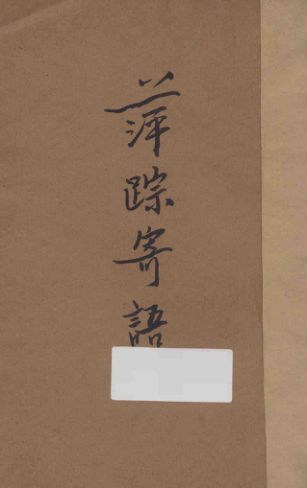 萍踪寄語